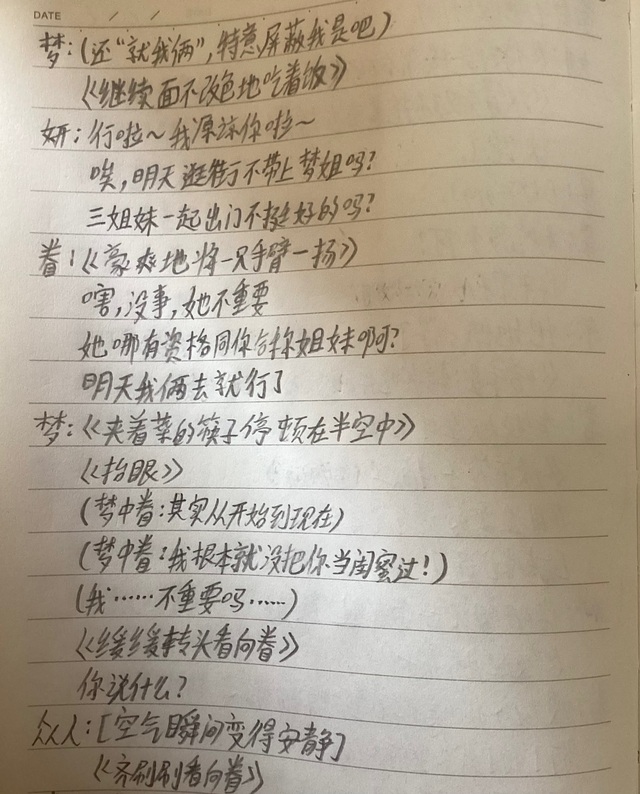 DATE / /
梦:(还“就我俩”,特意屏蔽我是吧)
《继续面不改色地吃着饭》
妍:行啦~我原谅你啦~
唉,明天逛街不带上梦姐吗?
三姐妹一起出门不挺好的吗?
眷:《豪爽地将一只手臂一扬》
嗐,没事,她不重要
她哪有资格同你合称姐妹啊?
明天我俩去就行了
梦:《夹着菜的筷子停顿在半空中》
《抬眼》
(梦中眷:其实从开始到现在)
(梦中眷:我根本就没把你当闺蜜过!)
(我……不重要吗……)
《缓缓转头看向眷》
你说什么?
众人:[空气瞬间变得安静]
《齐刷刷看向眷》